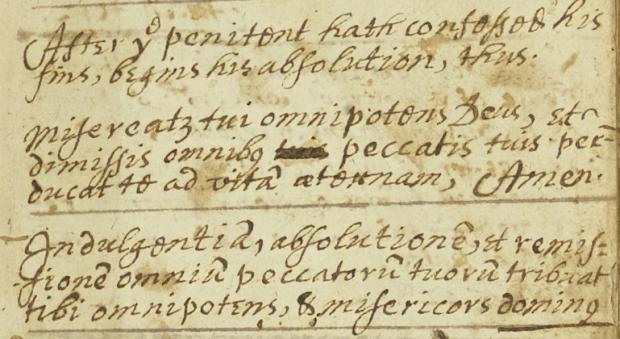 After yᵉ penitent hath confessed his
sins, begins his absolution, thus.
Misereatꝫ tui omnipotens Deus, et
dimissis omnibꝰ peccatis tuis per-
ducat te ad vitā æternam, Amen.
Indulgentiā, absolutionē, et remis-
sionē omniū peccatorū tuorū tribuat
tibi omnipotens, & misericors dominꝰ